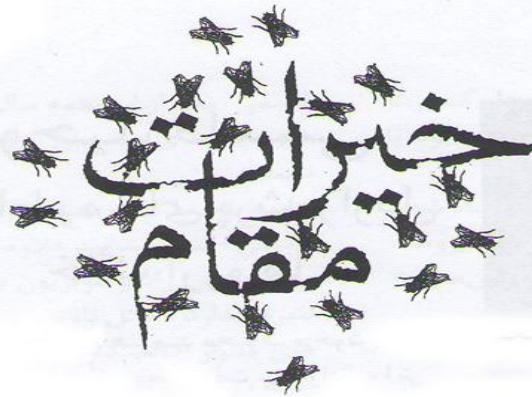 خيرات
مقام